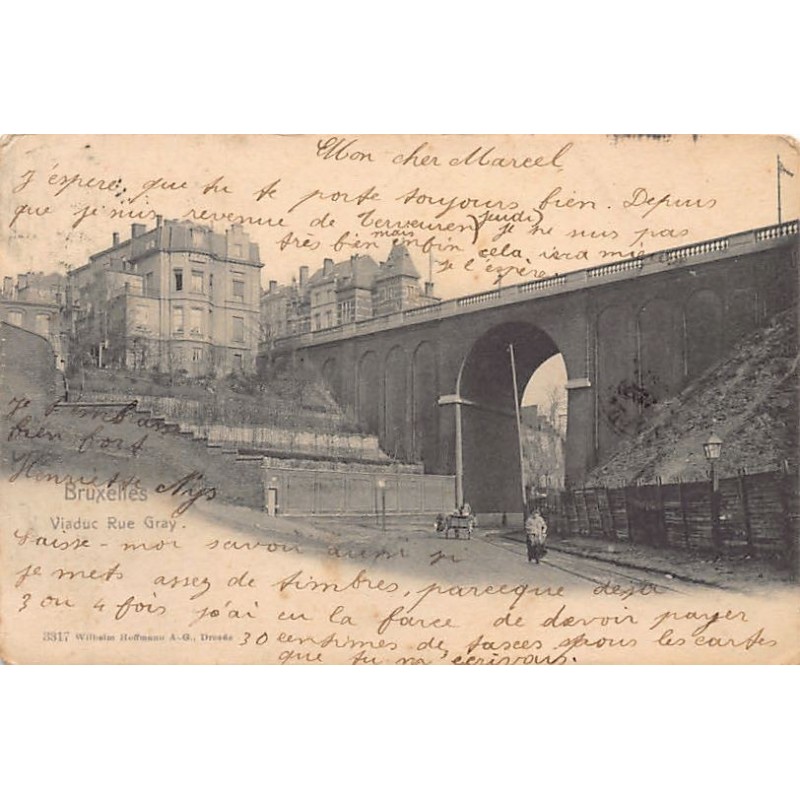 Mon cher Marcel
J'espère, que tu te porte toujours bien. Depuis
que je suis revenue de Tervueren (jeudi) je ne suis pas
très bien mais enfin cela ira mieux
je l'espère.
Je t'embrasse
bien fort
Henriette Nys
Bruxelles
Viaduc Rue Gray.
Laisse-moi savoir aussi si
je mets assez de timbres, parceque déjà
3 ou 4 fois j'ai eu la farce de devoir payer
3317 Wilhelm Hoffmann A.-G., Dresde
30 centimes de taxes pour les cartes
que tu m'écrivais.